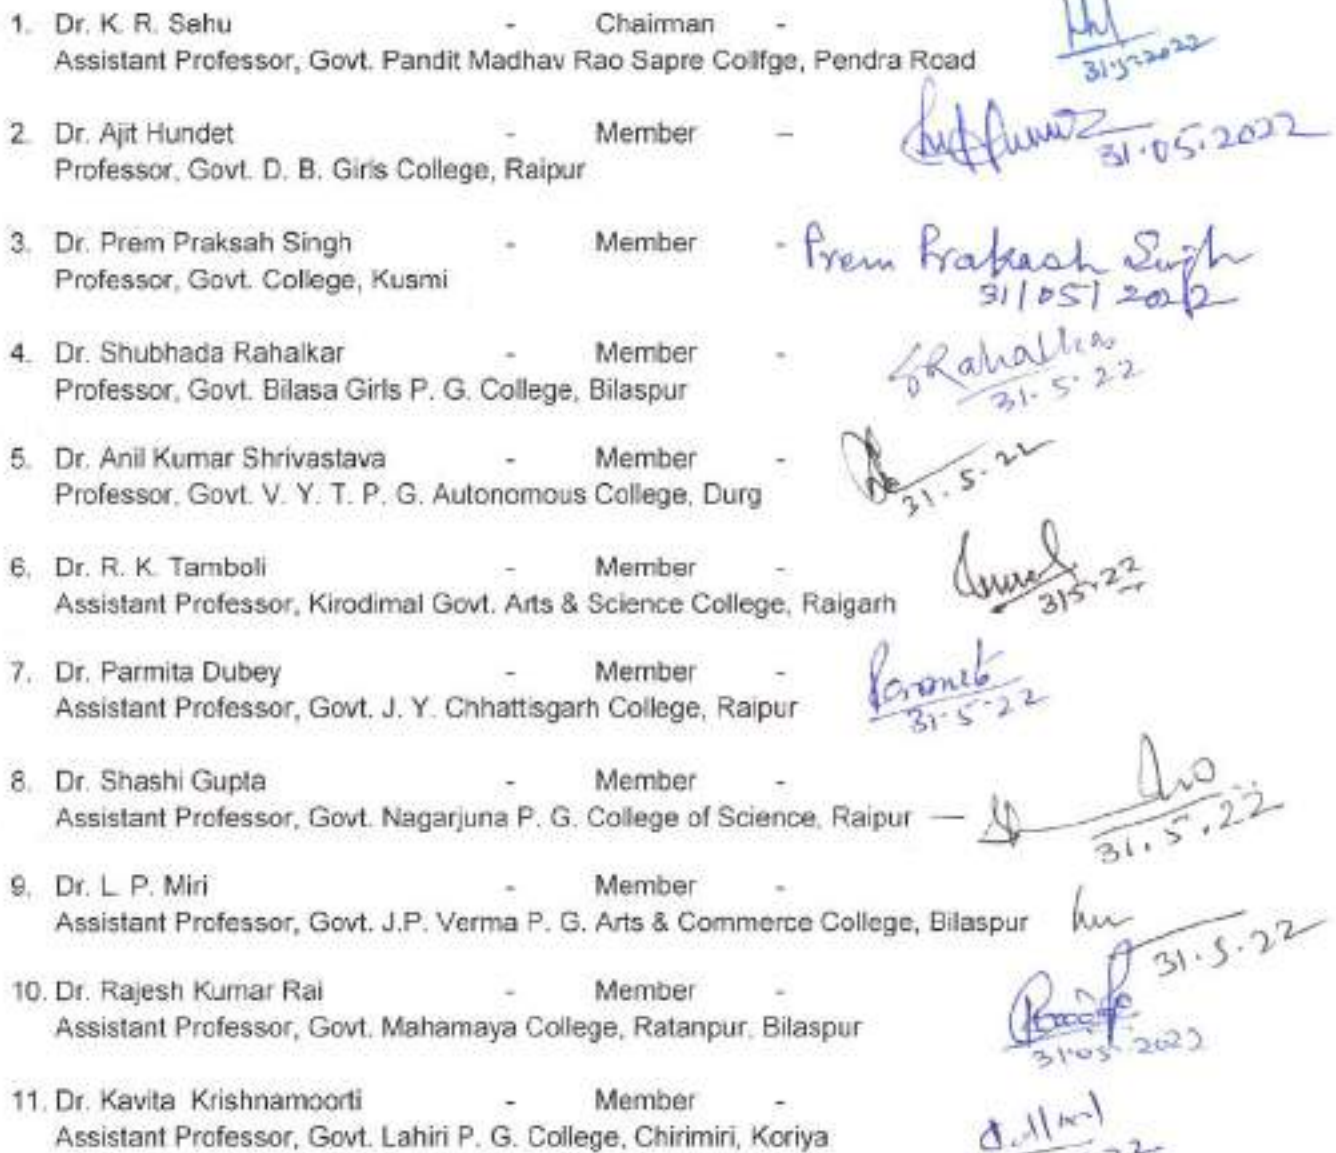 1. Dr. K. R. Sahu - Chairman -
31.5.2022
Assistant Professor, Govt. Pandit Madhav Rao Sapre Collfge, Pendra Road
2. Dr. Ajit Hundet - Member –
31.05.2022
Professor, Govt. D. B. Girls College, Raipur
3. Dr. Prem Praksah Singh - Member - Prem Prakash Singh
Professor, Govt. College, Kusmi
31/05/2022
4. Dr. Shubhada Rahalkar - Member - SRahalkar
Professor, Govt. Bilasa Girls P. G. College, Bilaspur
31.5.22
5. Dr. Anil Kumar Shrivastava - Member -
Professor, Govt. V. Y. T. P. G. Autonomous College, Durg
31.5.22
6. Dr. R. K. Tamboli - Member -
Assistant Professor, Kirodimal Govt. Arts & Science College, Raigarh
315.22
7. Dr. Parmita Dubey - Member -
Assistant Professor, Govt. J. Y. Chhattisgarh College, Raipur
31.5.22
8. Dr. Shashi Gupta - Member -
Assistant Professor, Govt. Nagarjuna P. G. College of Science, Raipur —
31.5.22
9. Dr. L. P. Miri - Member -
Assistant Professor, Govt. J.P. Verma P. G. Arts & Commerce College, Bilaspur
31.5.22
10. Dr. Rajesh Kumar Rai - Member -
Assistant Professor, Govt. Mahamaya College, Ratanpur, Bilaspur
31.05.2022
11. Dr. Kavita Krishnamoorti - Member -
Assistant Professor, Govt. Lahiri P. G. College, Chirimiri, Koriya